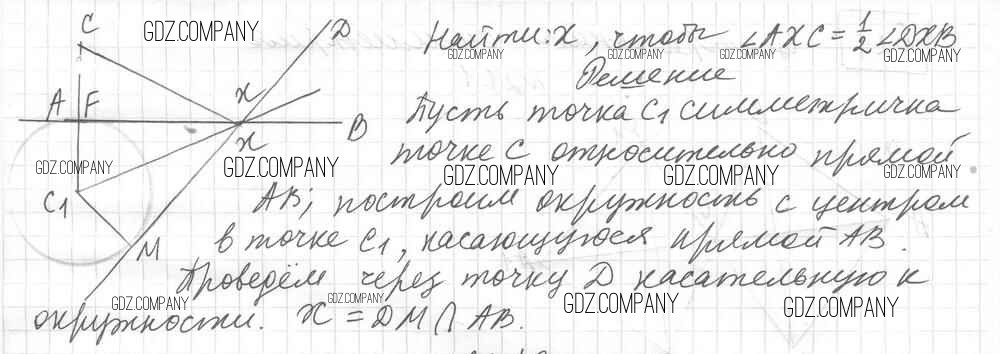 Найти: X, чтобы ∠AXC = 1/2 ∠DXB
Решение
Пусть точка C₁ симметрична
точке C относительно прямой
AB; построим окружность с центром
в точке C₁, касающуюся прямой AB.
Проведём через точку D касательную к
окружности. X = DM ∩ AB.
C
D
A F
X
X
B
C₁
M
GDZ.COMPANY
GDZ.COMPANY
GDZ.COMPANY
GDZ.COMPANY
GDZ.COMPANY
GDZ.COMPANY
GDZ.COMPANY
GDZ.COMPANY
GDZ.COMPANY
GDZ.COMPANY
GDZ.COMPANY
GDZ.COMPANY
GDZ.COMPANY